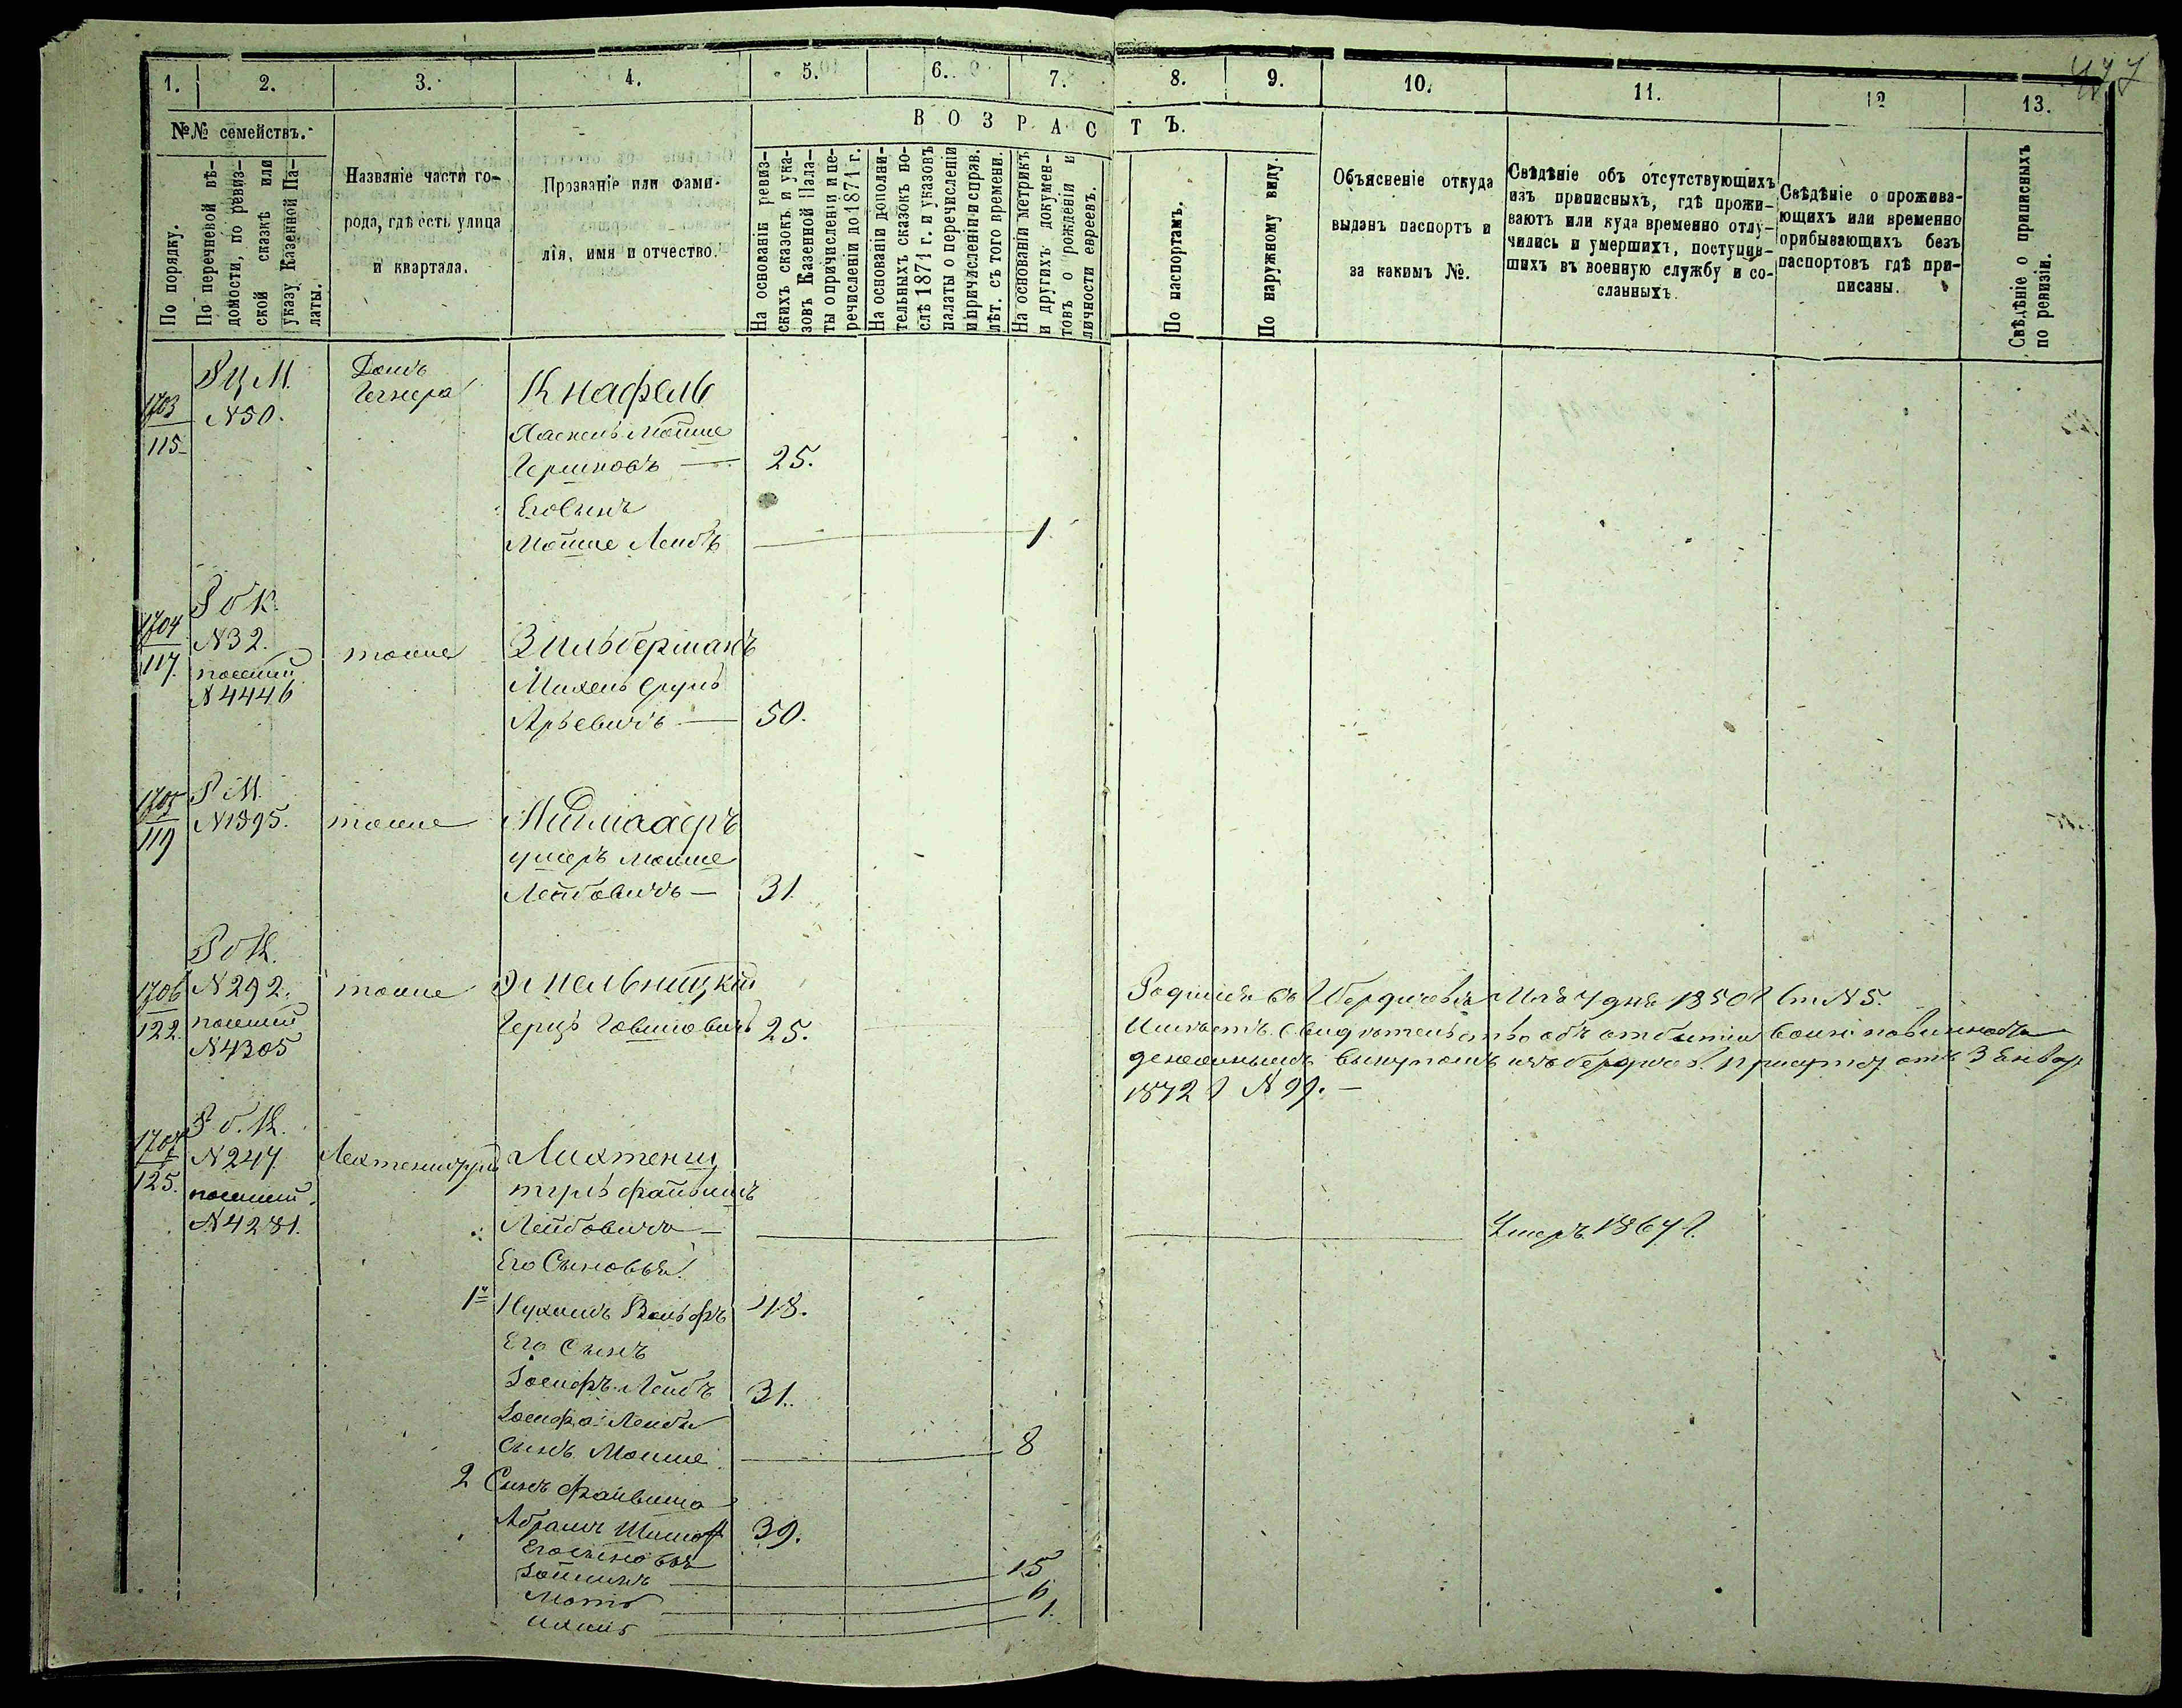 477
1. 2. 3. 4. 5. 6. 7. 8. 9. 10. 11. 12 13.
№№ семействъ.
В О З Р А С Т Ъ.
По порядку.
По перечневой вѣ-
домости, по ревиз-
ской сказкѣ или
указу Казенной Па-
латы.
Названіе части го-
рода, гдѣ есть улица
и квартала.
Прозваніе или фами-
лія, имя и отчество.
На основаніи ревиз-
скихъ сказокъ и ука-
зовъ Казенной Пала-
ты о причисленіи и пе-
речисленіи до 1871 г.
На основаніи дополни-
тельныхъ сказокъ по-
слѣ 1871 г. и указовъ
палаты о перечисленіи
и причисленіи и справ.
лѣт. съ того времени.
На основаніи метрикъ
и другихъ докумен-
товъ о рожденіи и
личности евреевъ.
По паспортамъ.
По наружному виду.
Объясненіе откуда
выданъ паспортъ и
за какимъ №.
Свѣдѣніе объ отсутствующихъ
изъ приписныхъ, гдѣ прожи-
ваютъ или куда временно отлу-
чились и умершихъ, поступив-
шихъ въ военную службу и со-
сланныхъ.
Свѣдѣніе о прожива-
ющихъ или временно
прибывающихъ безъ
паспортовъ гдѣ при-
писаны.
Свѣдѣніе о приписныхъ
по ревизіи.
1703
115
N50.
Домъ
Кнафель
Хаскель Мойше
Гершковъ — 25.
Его Сынъ
Мойше Лейбъ 1
1704
117.
N32.
N4446
тоже
Зильберманъ
Михель Сруль
Арьевичъ — 50.
1705
119
Р М.
N1895.
тоже
Мойше
Лейбовичъ — 31
1706
122.
N292.
N4305
тоже
Хмельницкій
Герцъ 25.
Родился въ Бердичевѣ Мая 7 дня 1850 г. ст N5.
Имѣетъ свидѣтельство объ отбытіи воинс. повинности
денежнымъ выкупомъ изъ Бердичев. Присут. отъ 3 Январ.
1872 г N99. —
1707
125.
N247
N4281.
Лихтенш
тулъ Файвишъ
Лейбовичъ —
Умеръ 1867 г.
Его Сыновья:
1й Нухимъ Вольфъ 48.
Его Сынъ
Іосифъ Лейбъ 31.
Іосифа Лейбы
Сынъ Мойше 8
2 Сынъ Файвиша
Абрамъ 39.
Его сыновья
15
Мотя 6
1.